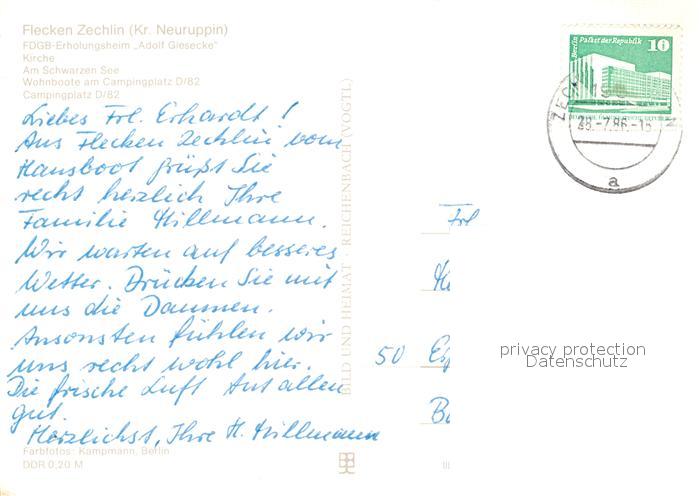 Flecken Zechlin (Kr. Neuruppin)
FDGB-Erholungsheim „Adolf Giesecke"
Kirche
Am Schwarzen See
Wohnboote am Campingplatz D/82
Campingplatz D/82
Liebes Frl. Erhardt!
Aus Flecken Zechlin vom
Hausboot grüßt Sie
recht herzlich Ihre
Familie Hillmann.
Wir warten auf besseres
Wetter. Drücken Sie mit
uns die Daumen.
Ansonsten fühlen wir
uns recht wohl hier.
Die frische Luft tut allen
gut.
Herzlichst, Ihre H. Hillmann
Farbfotos: Kampmann, Berlin
DDR 0,20 M
BILD UND HEIMAT · REICHENBACH (VOGTL)
Berlin Palast der Republik
10
-7.86.-15
a
Frl
50
privacy protection
Datenschutz